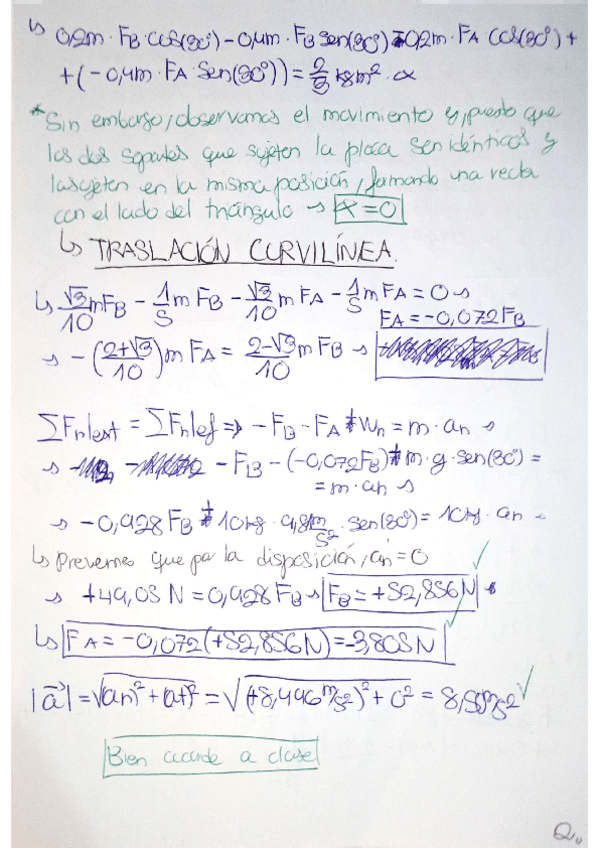 ↳ 0,2m · FB cos(30°) - 0,4m · FB sen(30°) - 0,2m · FA cos(30°) +
+ (-0,4m · FA sen(30°)) = 2/3 kg m² · α
* Sin embargo, observamos el movimiento y, puesto que
los dos soportes que sujeten la placa son idénticos y
la sujeten en la misma posición, formando una recta
con el lado del triángulo → α = 0
↳ TRASLACIÓN CURVILÍNEA.
↳ √3/10 m FB - 1/5 m FB - √3/10 m FA - 1/5 m FA = 0 →
FA = -0,072 FB
→ -(2+√3/10) m FA = 2-√3/10 m FB →
ΣFn|ext = ΣFn|ef ⇒ - FB - FA + Wn = m · an →
→ - FB - (-0,072FB) + m · g · sen(30°) =
= m · an →
→ -0,928 FB + 10kg · 9,81 m/s² · sen(30°) = 10kg · an →
↳ Prevemos que por la disposición, an = 0
→ +49,05 N = 0,928 FB → FB = +52,856 N
↳ FA = -0,072 (+52,856N) = -3,805N
|a⃗| = √(an)² + (at)² = √(+8,496 m/s²)² + 0² = 8,5 m/s² ✓
Bien acorde a clase